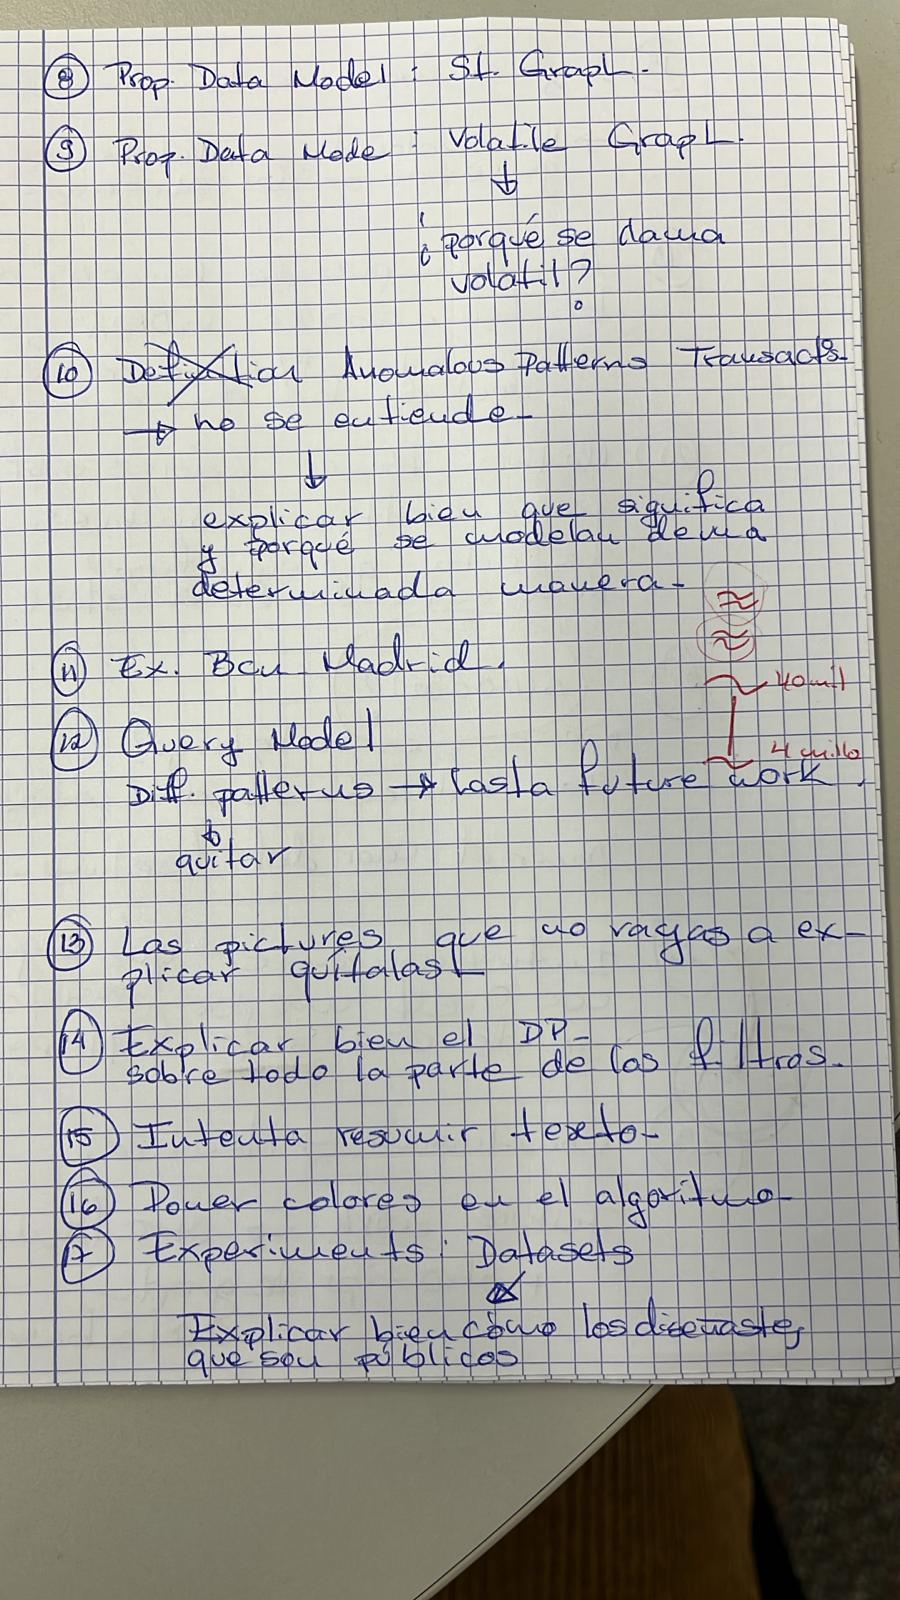 8 Prop. Data Model : St. Graph.
9 Prop. Data Mode : Volatile Graph.
¿porqué se llama
volatil?
10 Definition Anomalous Patterns Transacts.
→ no se entiende.
explicar bien que significa
y porqué se modelan de una
determinada manera.
11 Ex. Bcn Madrid.
40 mil
12 Query Model
4 millo
Diff. patterns → hasta future work.
quitar
13 Las pictures que no vayas a ex-
plicar quítalas!
14 Explicar bien el DP.
sobre todo la parte de los filtros.
15 Intenta resumir texto.
16 Poner colores en el algoritmo.
17 Experiments : Datasets
Explicar bien como los diseñaste,
que son públicos